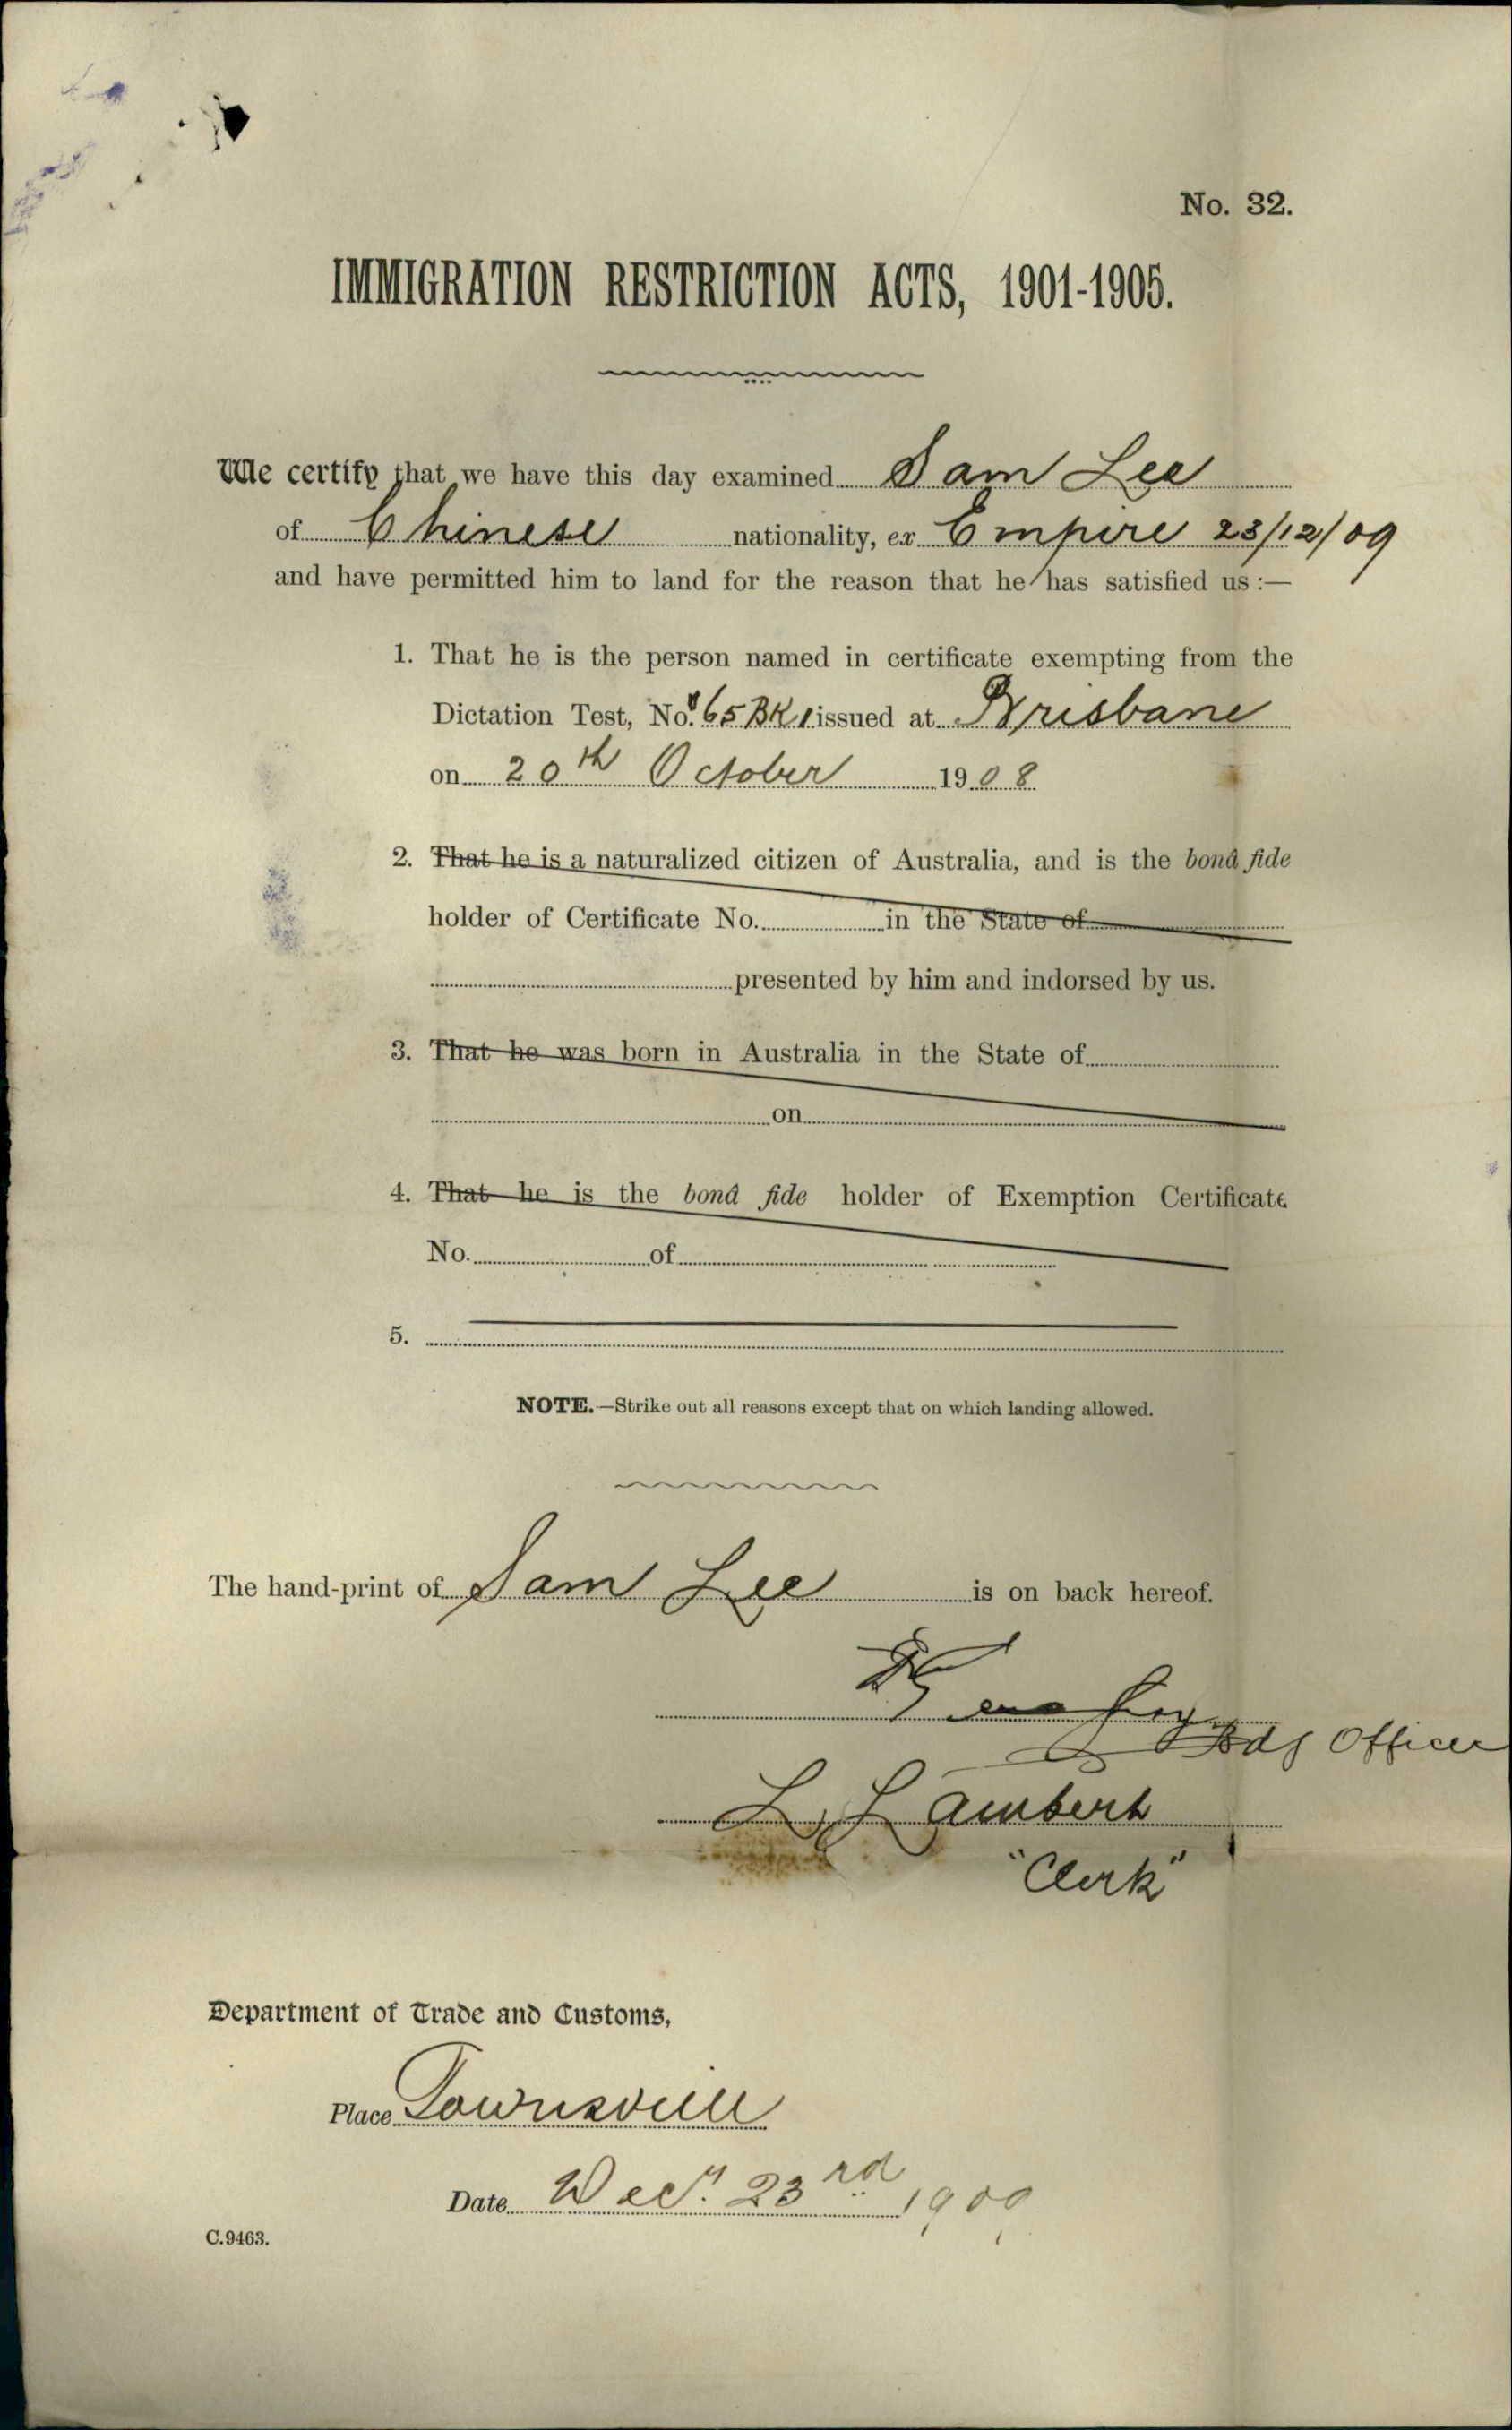 No. 32.
IMMIGRATION RESTRICTION ACTS, 1901-1905.
We certify that we have this day examined Sam Lee
of Chinese nationality, ex Empire 23/12/09
and have permitted him to land for the reason that he has satisfied us :—
1. That he is the person named in certificate exempting from the
Dictation Test, No. 65 BK 1 issued at Brisbane
on 20th October 1908
2. That he is a naturalized citizen of Australia, and is the bonâ fide
holder of Certificate No. in the State of
presented by him and indorsed by us.
3. That he was born in Australia in the State of
on
4. That he is the bonâ fide holder of Exemption Certificate
No. of
5.
NOTE.—Strike out all reasons except that on which landing allowed.
The hand-print of Sam Lee is on back hereof.
Bdg Officer
L. Lambert
"Clerk"
Department of Trade and Customs,
Place Townsville
Date Decr. 23rd 1909
C.9463.